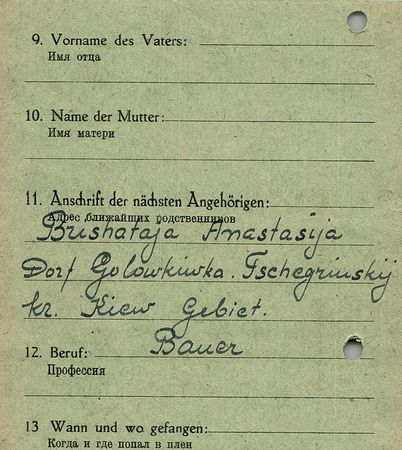 9. Vorname des Vaters:
Имя отца
10. Name der Mutter:
Имя матери
11. Anschrift der nächsten Angehörigen:
Адрес ближайших родственников
Brishataja Anastasija
Dorf Golowkiwka. Tschegrinskij
kr. Kiew Gebiet.
12. Beruf: Bauer
Профессия
13 Wann und wo gefangen:
Когда и где попал в плен